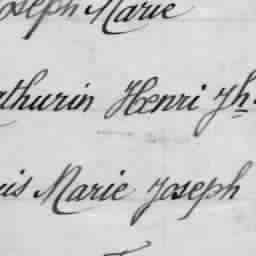 oseph Marie
thurin Henri Jh.
uis Marie Joseph